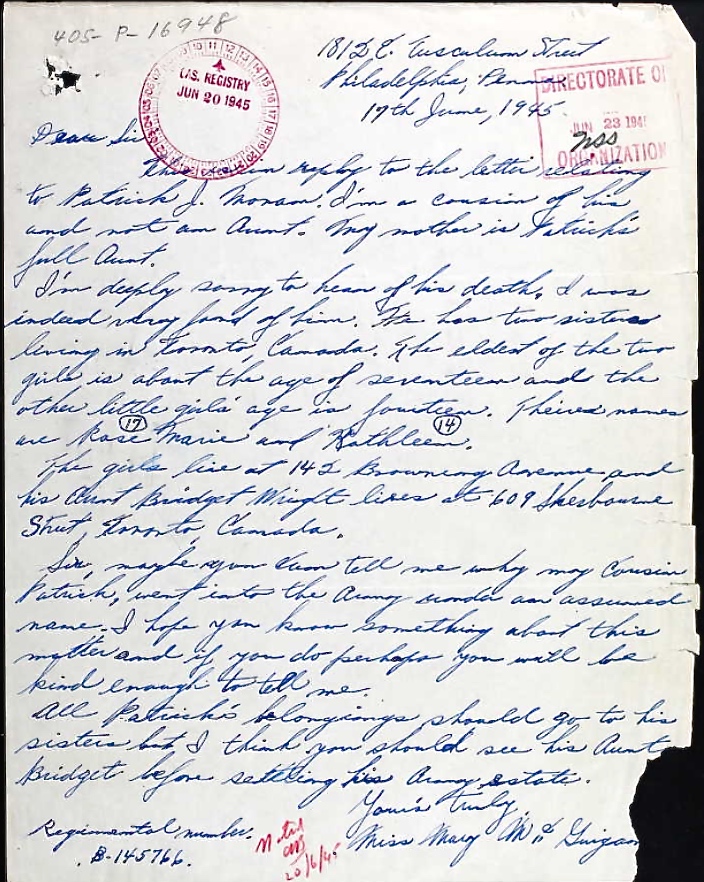 405-P-16948
1812 E. Tusculum Street
Philadelphia, Penna
17th June, 1945.
CAS. REGISTRY
JUN 20 1945
DIRECTORATE O
JUN 23 194
ORGANIZATION
Dear Sir
This in reply to the letter relating
to Patrick J. Moran. I'm a cousion of his
and not an Aunt. My mother is Patrick's
full Aunt.
I'm deeply sorry to hear of his death. I was
indeed very fond of him. He has two sisters
living in Toronto, Canada. The eldest of the two
girls is about the age of seventeen and the
other little girls' age is fourteen. Theires names
17 14
are Rose Marie and Kathleen.
The girls live at 142 Browning Avenue and
his Aunt Bridget Wright lives at 609 Sherbourne
Street, Toronto, Canada.
Sir, maybe you can tell me why my Cousin
Patrick, went into the Army under an assumed
name. I hope you know something about this
matter and if you do perhaps you will be
kind enough to tell me.
All Patrick's belongings should go to his
sisters but I think you should see his Aunt
Bridget before settling his Army estate.
Your's Truly,
Miss Mary
Regimental number.
B-145766.
Noted
20/6/45